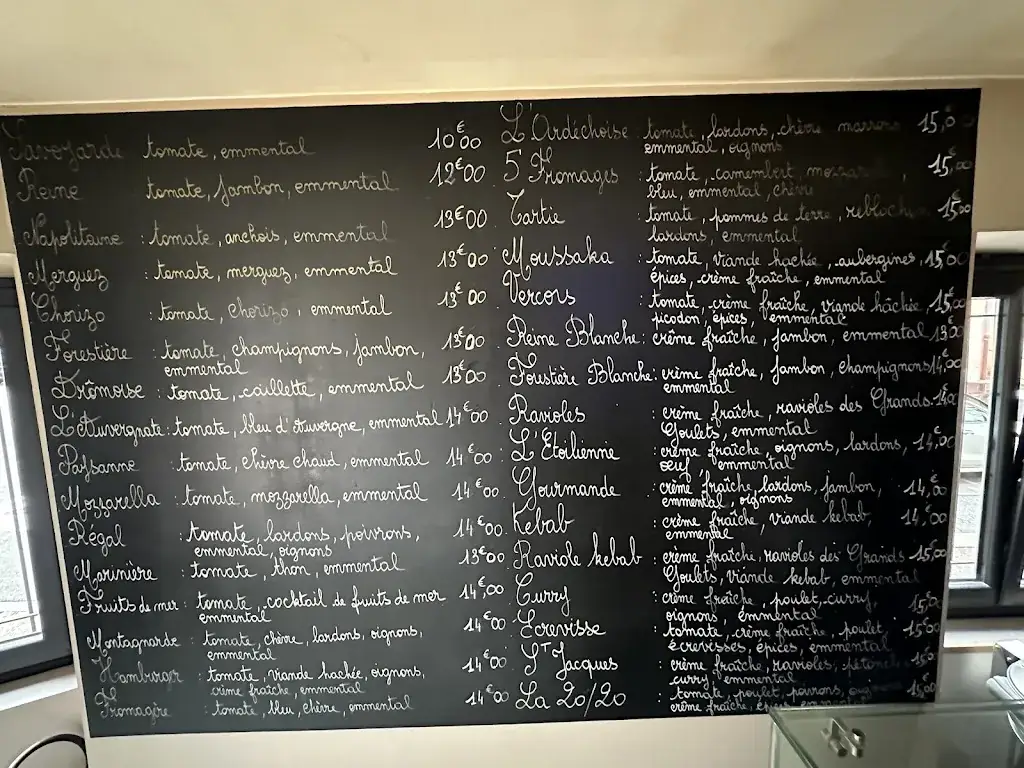 Savoyarde tomate, emmental 10€00
Reine tomate, jambon, emmental 12€00
Napolitaine : tomate, anchois, emmental 13€00
Merguez : tomate, merguez, emmental 13€00
Chorizo : tomate, chorizo, emmental 13€00
Forestière : tomate, champignons, jambon, 13€00
emmental
Drômoise : tomate, caillette, emmental 13€00
L'Auvergnate : tomate, bleu d'Auvergne, emmental 14€00
Paysanne : tomate, chèvre chaud, emmental 14€00
Mozzarella : tomate, mozzarella, emmental 14€00
Régal : tomate, lardons, poivrons, 14€00
emmental, oignons
Marinière : tomate, thon, emmental 13€00
Fruits de mer : tomate, cocktail de fruits de mer 14€,00
emmental
Montagnarde : tomate, chèvre, lardons, oignons, 14€00
emmental
Hamburger : tomate, viande hachée, oignons, 14€00
crème fraîche, emmental
Fromagère : tomate, bleu, chèvre, emmental 14€00
L'Ardéchoise tomate, lardons, chèvre marrons 15,0
emmental, oignons
5 Fromages : tomate, camembert, 15,00
bleu, emmental, chèvre
Tartie : tomate, pommes de terre, 15,00
lardons, emmental
Moussaka : tomate, viande hachée, aubergines, 15,00
épices, crème fraîche, emmental
Vercors : tomate, crème fraîche, viande hâchée, 15,00
picodon, épices, emmental
Reine Blanche : crème fraîche, jambon, emmental 13,00
Foustière Blanche : crème fraîche, jambon, champignons 14,00
emmental
Ravioles : crème fraîche, ravioles des Grands
Goulets, emmental
L'Étoilienne : crème fraîche, oignons, lardons, 14,00
oeuf, emmental
Gourmande : crème fraîche, lardons, jambon, 14,00
emmental, oignons
Kebab : crème fraîche, viande kebab, 14,00
emmental
Raviole kebab : crème fraîche, ravioles des Grands 15,00
Goulets, viande kebab, emmental
Curry : crème fraîche, poulet, curry, 15,00
oignons, emmental
Ecrevisse : tomate, crème fraîche, poulet, 15,00
écrevisses, épices, emmental
St Jacques : crème fraîche, ravioles,
curry, emmental
La 20/20 : tomate, poulet, poivrons, 15,00
crème fraîche,